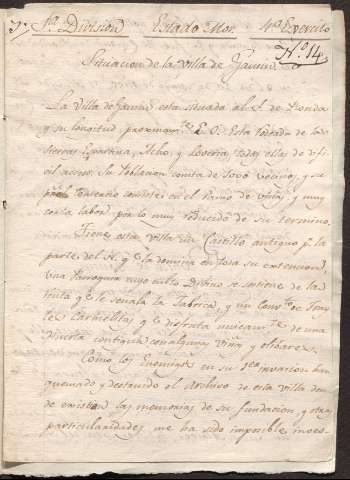 1ª. Division Estado Mor. 4º Exercito
Nº. 14
Situacion de la Villa de Gaucin
La Villa de Gaucin esta situada al S. de Ronda
y su longitud proximamte. E. O. Esta rodeada de las
sierras Espartina, Acho, y todas ellas de difi-
cil acceso, su Poblacion consta de 1000 vecinos, y su
pral. consiste en el Ramo de viñas, y muy
corta labor, por lo muy reducido de su termino.
Tiene esta villa un Castillo antiguo pr. la
parte del N. q. la domina en toda su extencion,
una Parroquia cuyo culto Divino se sostiene de la
renta q. le señala la Fabrica, y un Convto. de Fray-
les Carmelitas, q. disfruta unicamte. de una
huerta contigua con algunas viñas y olivares.
Como los Enemigos en su invacion han
quemado y destruido el Archivo de esta villa don
de existian las memorias de su fundacion, y otras
particularidades, me ha sido imposible inves-